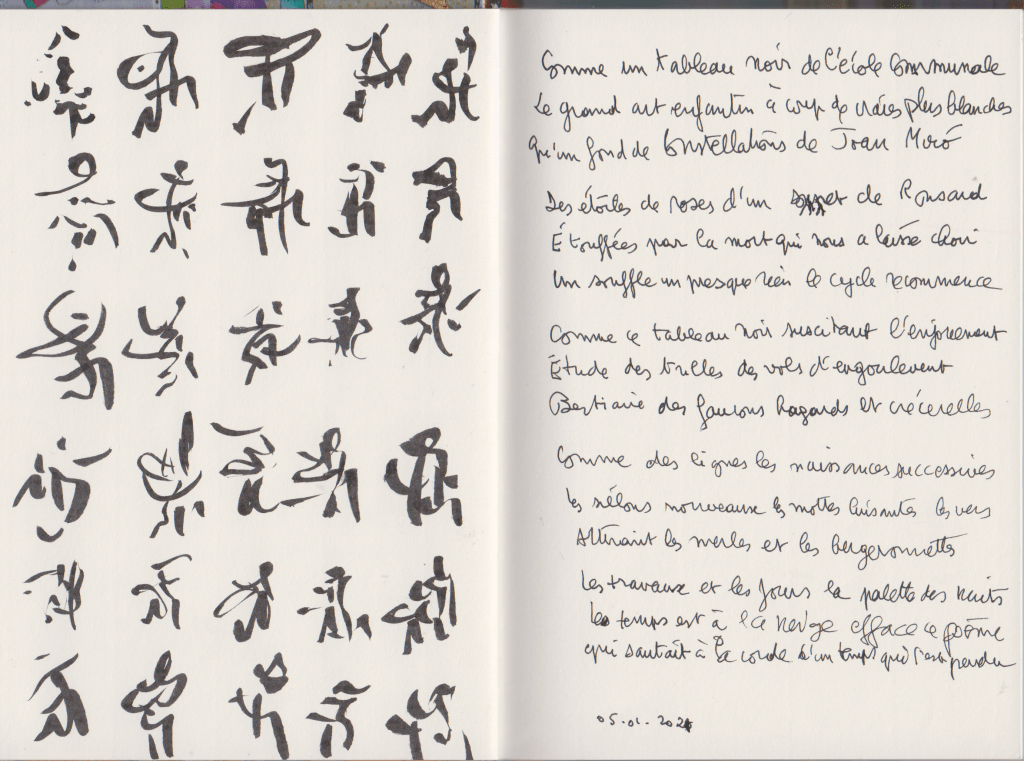 Comme un tableau noir de l'école Communale
Le grand art enfantin à coup de craies plus blanches
Qu'un fond de Constellations de Joan Miró
Des étoiles de roses d'un de Ronsard
Étouffées par la mort qui nous a laissé choir
Un souffle un presque rien le cycle recommence
Comme ce tableau noir suscitant l'enjouement
Étude des trilles des vols d'engoulevent
Bestiaire des faucons hagards et crécerelles
Comme des lignes les naissances successives
les sillons nouveaux les mottes luisantes les vers
Attirant les merles et les bergeronnettes
Les travaux et les jours la palette des nuits
le temps est à la neige efface ce poème
qui sautait à la corde d'un temps qui s'est perdu
05.01.2021